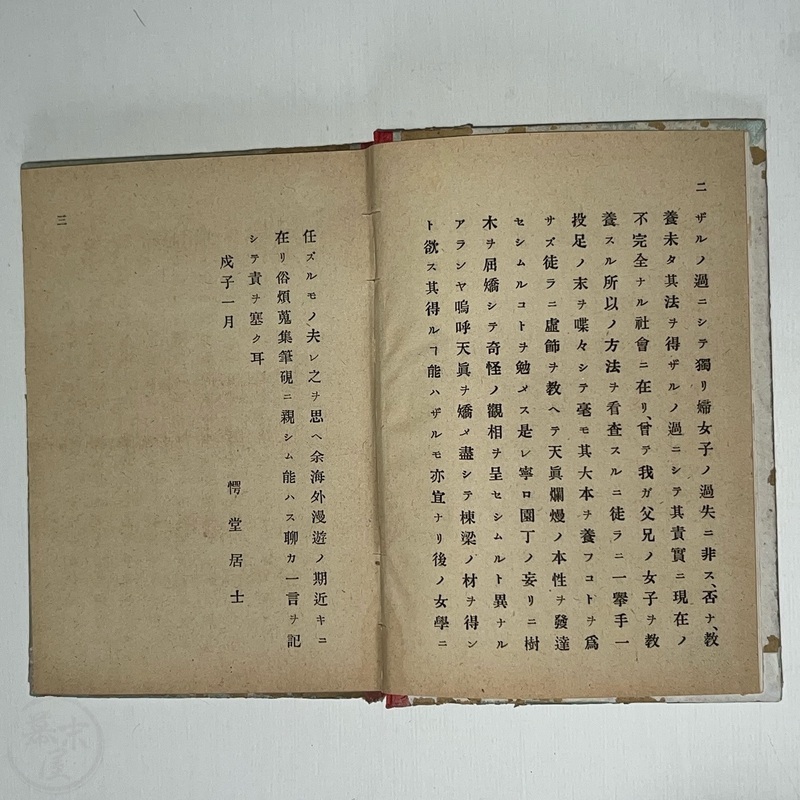 二
ザルノ過ニシテ獨リ婦女子ノ過失ニ非ス、否ナ、教
養未タ其法ヲ得ザルノ過ニシテ其責實ニ現在ノ
不完全ナル社會ニ在リ、曾テ我ガ父兄ノ女子ヲ教
養スル所以ノ方法ヲ看査スルニ徒ラニ一擧手一
投足ノ末ヲ喋々シテ毫モ其大本ヲ養フコトヲ爲
サズ徒ラニ虛飾ヲ教ヘテ天眞爛熳ノ本性ヲ發達
セシムルコトヲ勉メス是レ寧ロ園丁ノ妄リニ樹
木ヲ屈矯シテ奇怪ノ觀相ヲ呈セシムルト異ナル
アランヤ嗚呼天眞ヲ矯メ盡シテ棟梁ノ材ヲ得ン
ト欲ス其得ルヿ能ハザルモ亦宜ナリ後ノ女學ニ
任ズルモノ夫レ之ヲ思ヘ余海外漫遊ノ期近キニ
在リ俗煩蒐集筆硯ニ親シム能ハス聊カ一言ヲ記
シテ責ヲ塞ク耳
戊子一月
愕堂居士
三
幕末屋